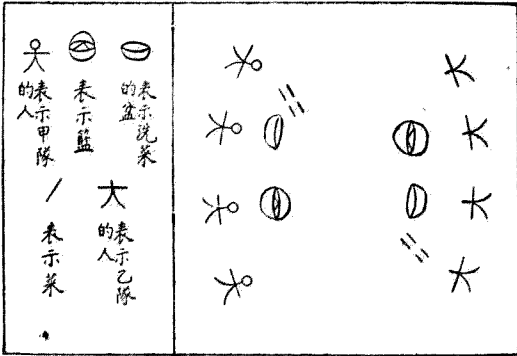 表示洗菜
的盆
表示籃
表示甲隊
的人
表示乙隊
的人
表示菜